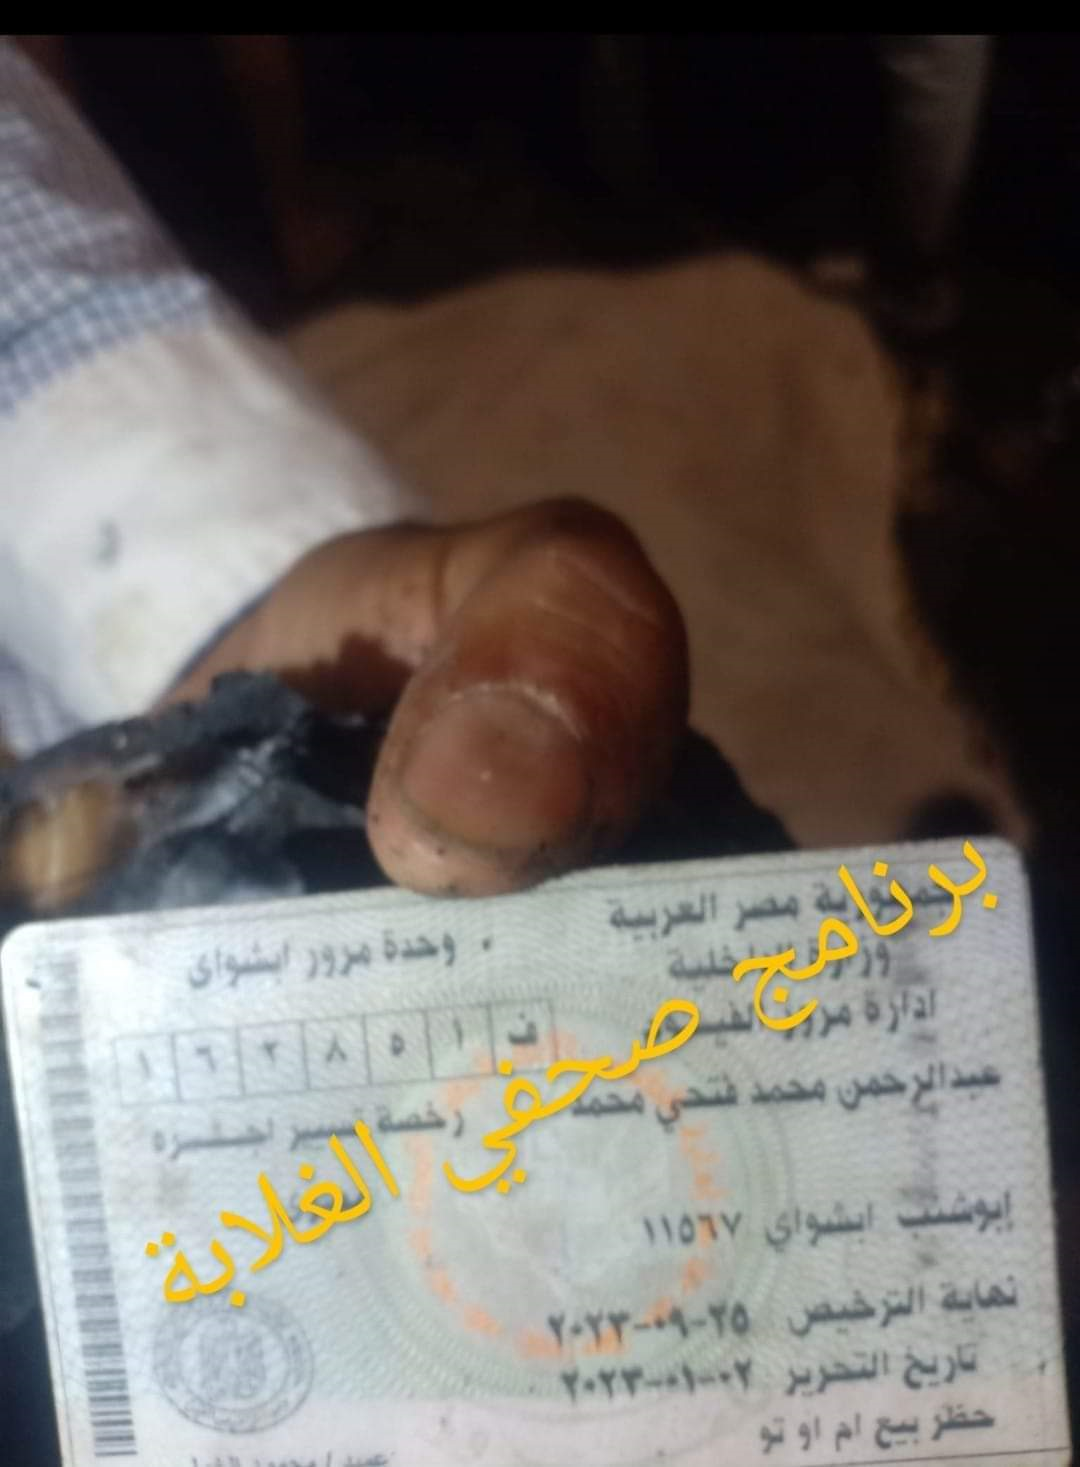 جمهورية مصر العربية
وزارة الداخلية
وحدة مرور ابشواى
ادارة مرور الفيوم
ف ١ ٥ ٨ ٣ ٦ ١
عبدالرحمن محمد فتحي محمد
رخصة تسيير اجـــره
إبوشنب ابشواي ١١٥٦٧
نهاية الترخيص ٢٠٢٣-٠٩-٢٥
تاريخ التحرير ٢٠٢٣-٠١-٠٢
حظر بيع ام او تو
برنامج صحفي الغلابة